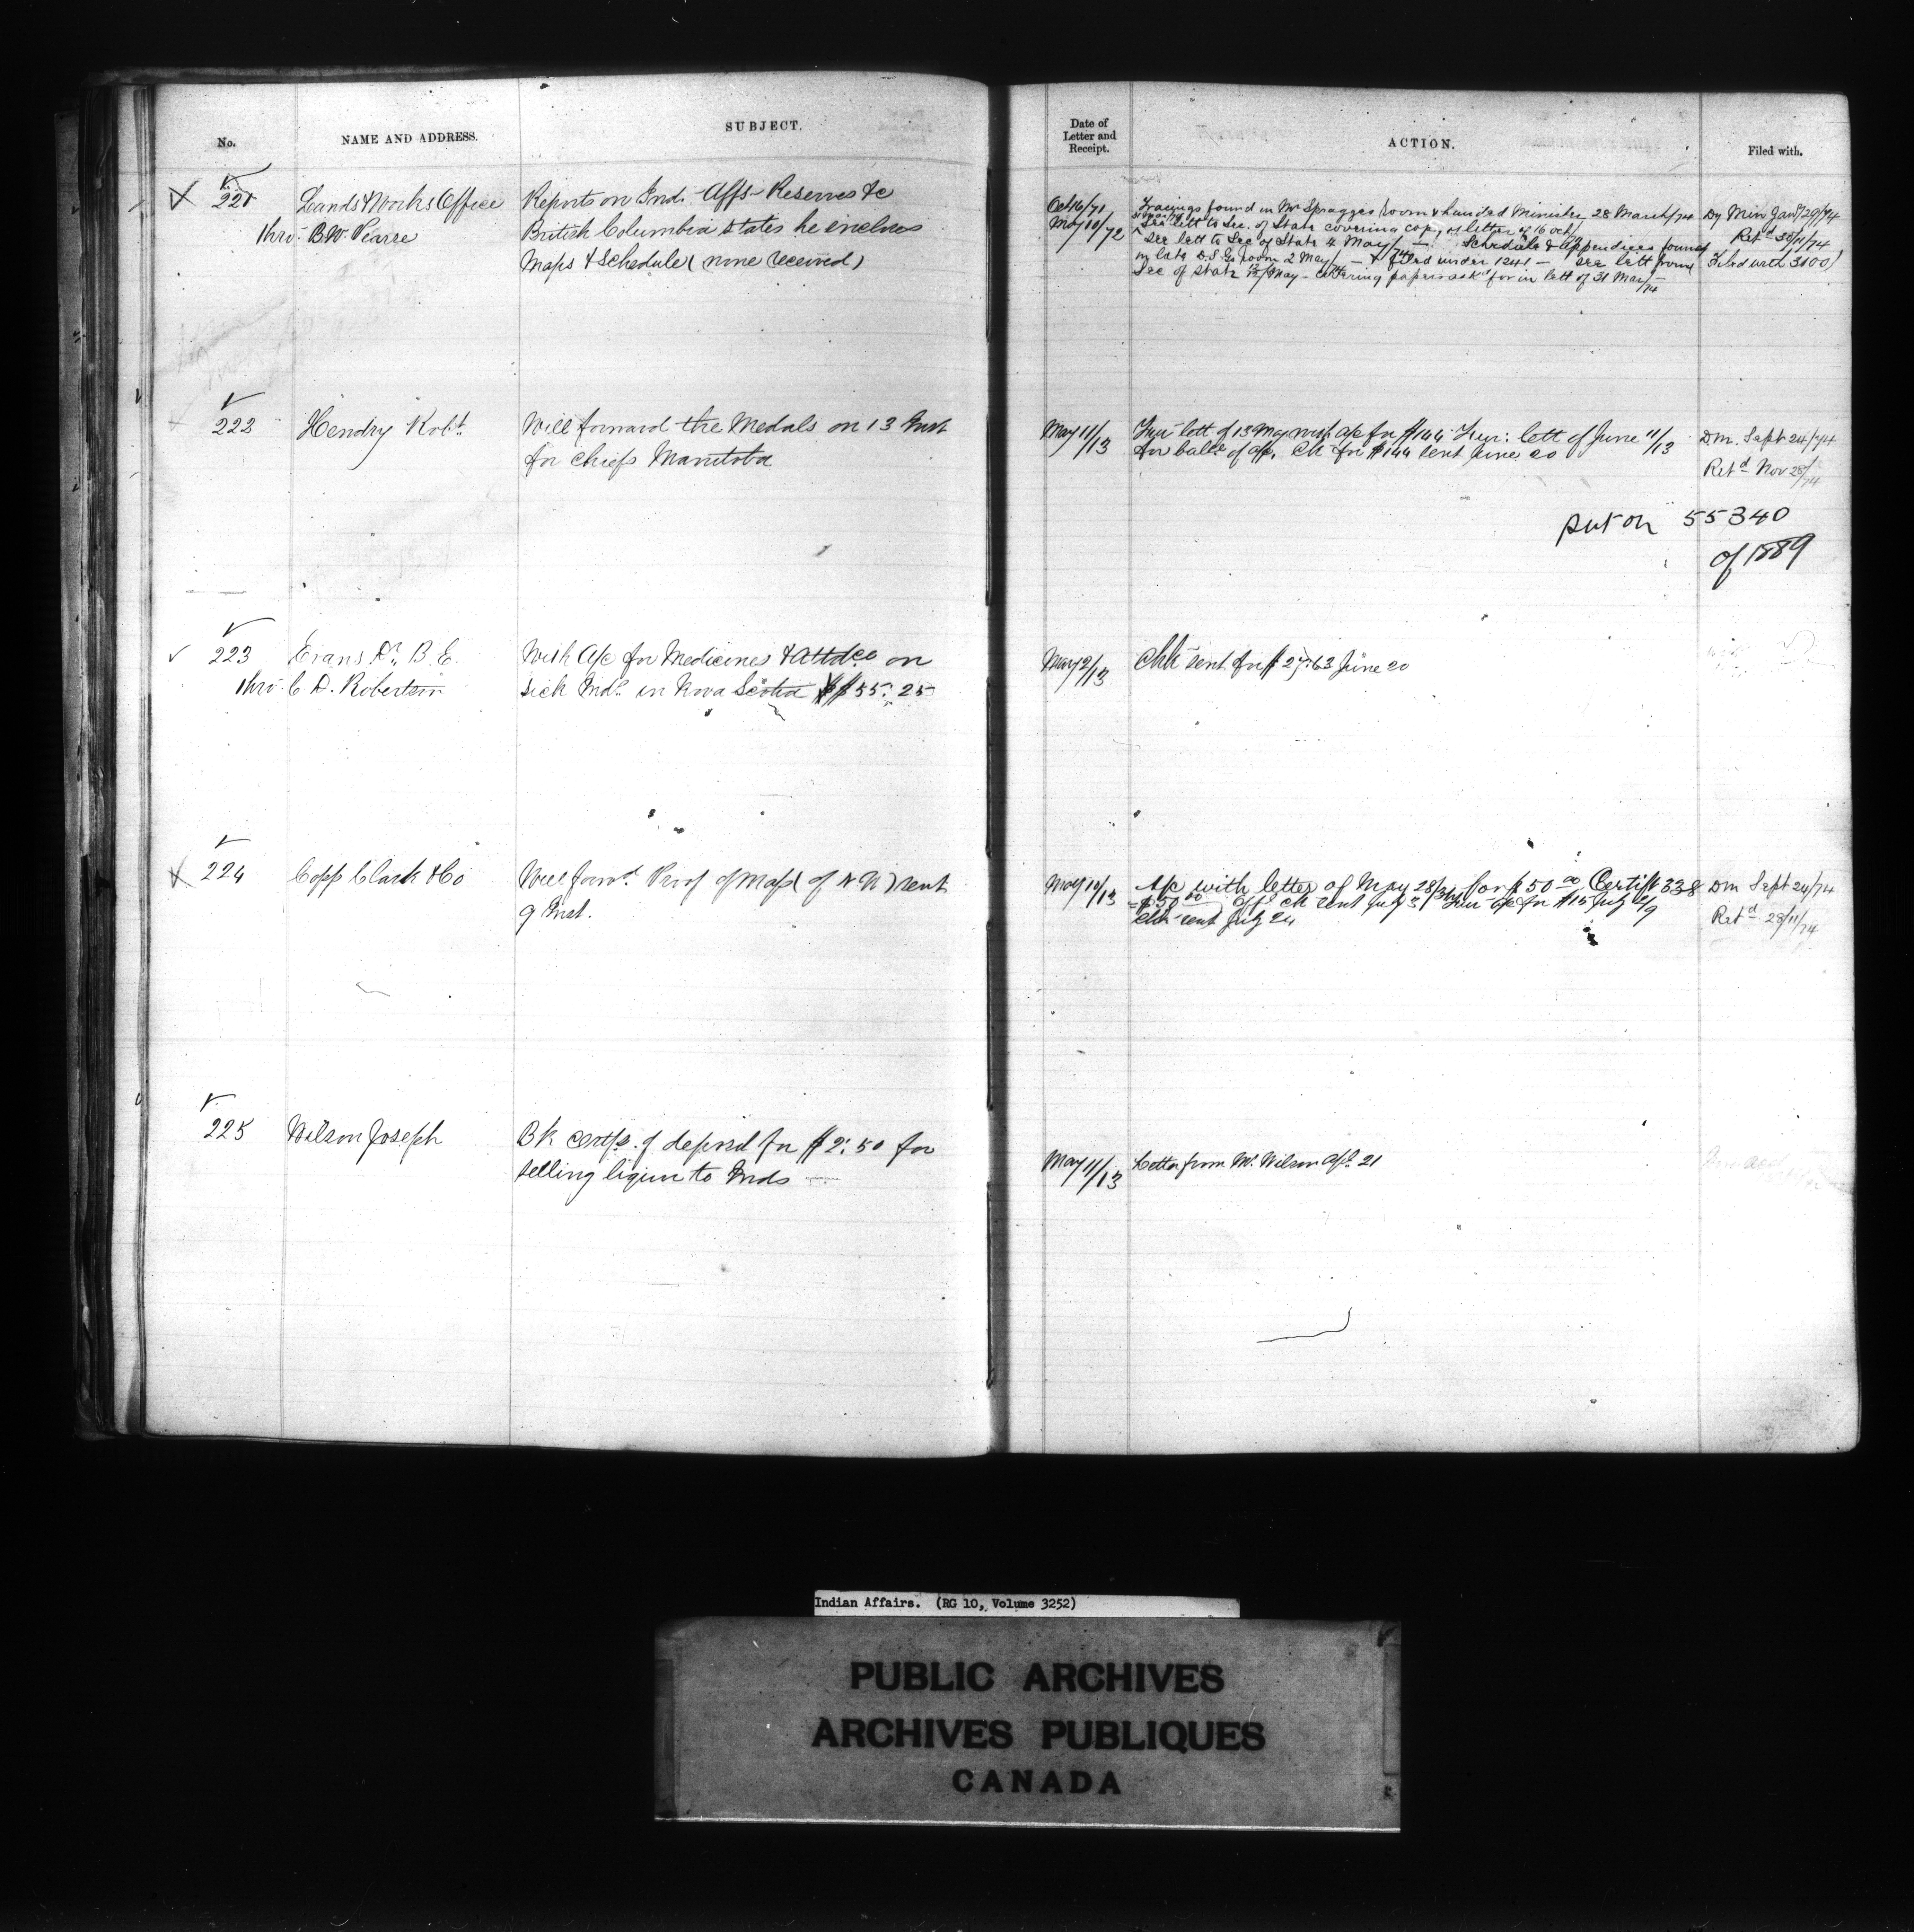 No.
NAME AND ADDRESS.
SUBJECT.
Date of
Letter and
Receipt.
ACTION.
Filed with.
221
Lands & Works Office
thro: B.W. Pearse
Reports on Ind. Affs - Reserves &c
British Columbia states he encloses
Maps & Schedule (none received)
Oct 16/71
May 10/72
Tracings found in Mr Spragges room & handed Minister 28 March/74
See lett to Sec. of State covering copy of letter of 16 Oct/
See lett to Sec of State 4 May/74 — Schedule & Appendices found
in late D.S.G. room 2 May/74 & filed under 1241 — see lett from
Sec of State May - covering papers ask'd for in lett of 31 Mar/74
Dy Min Jany 29/74
Retd 30/11/74
Filed with 3100)
222
Hendry Robt.
Will forward the Medals on 13 Inst
for Chiefs Manitoba
May 11/13
Fur: lett of 13 May with a/c for $144 Fur: lett of June 11/13
for balce of a/c, Ck for $144 sent June 20
Dm. Sept 24/74
Retd Nov 28/74
put on 55340
of 1889
223
Evans Dr. B.E.
thro: C D. Robertson
With A/c for Medicines & Attdce on
sick Inds. in Nova Scotia $55.25
May 2/13
Chk sent for $27.63 June 20
224
Copp Clark & Co
Will forwd. Proof of Map (of N W) sent
9 Inst.
May 10/13
A/c with letter of May 28/31 for $50 00 Certift 338
= $50 00 off ck sent July 3/ Fur a/c for $15 July 2/9
Chk sent July 24
Dm Sept 24/74
Retd 28/11/74
225
Wilson Joseph
Bk certfs. of deposit for $2.50 for
selling liquor to Inds
May 11/13
Letter from Mr. Wilson Apl. 21
Indian Affairs. (RG 10, Volume 3252)
PUBLIC ARCHIVES
ARCHIVES PUBLIQUES
CANADA